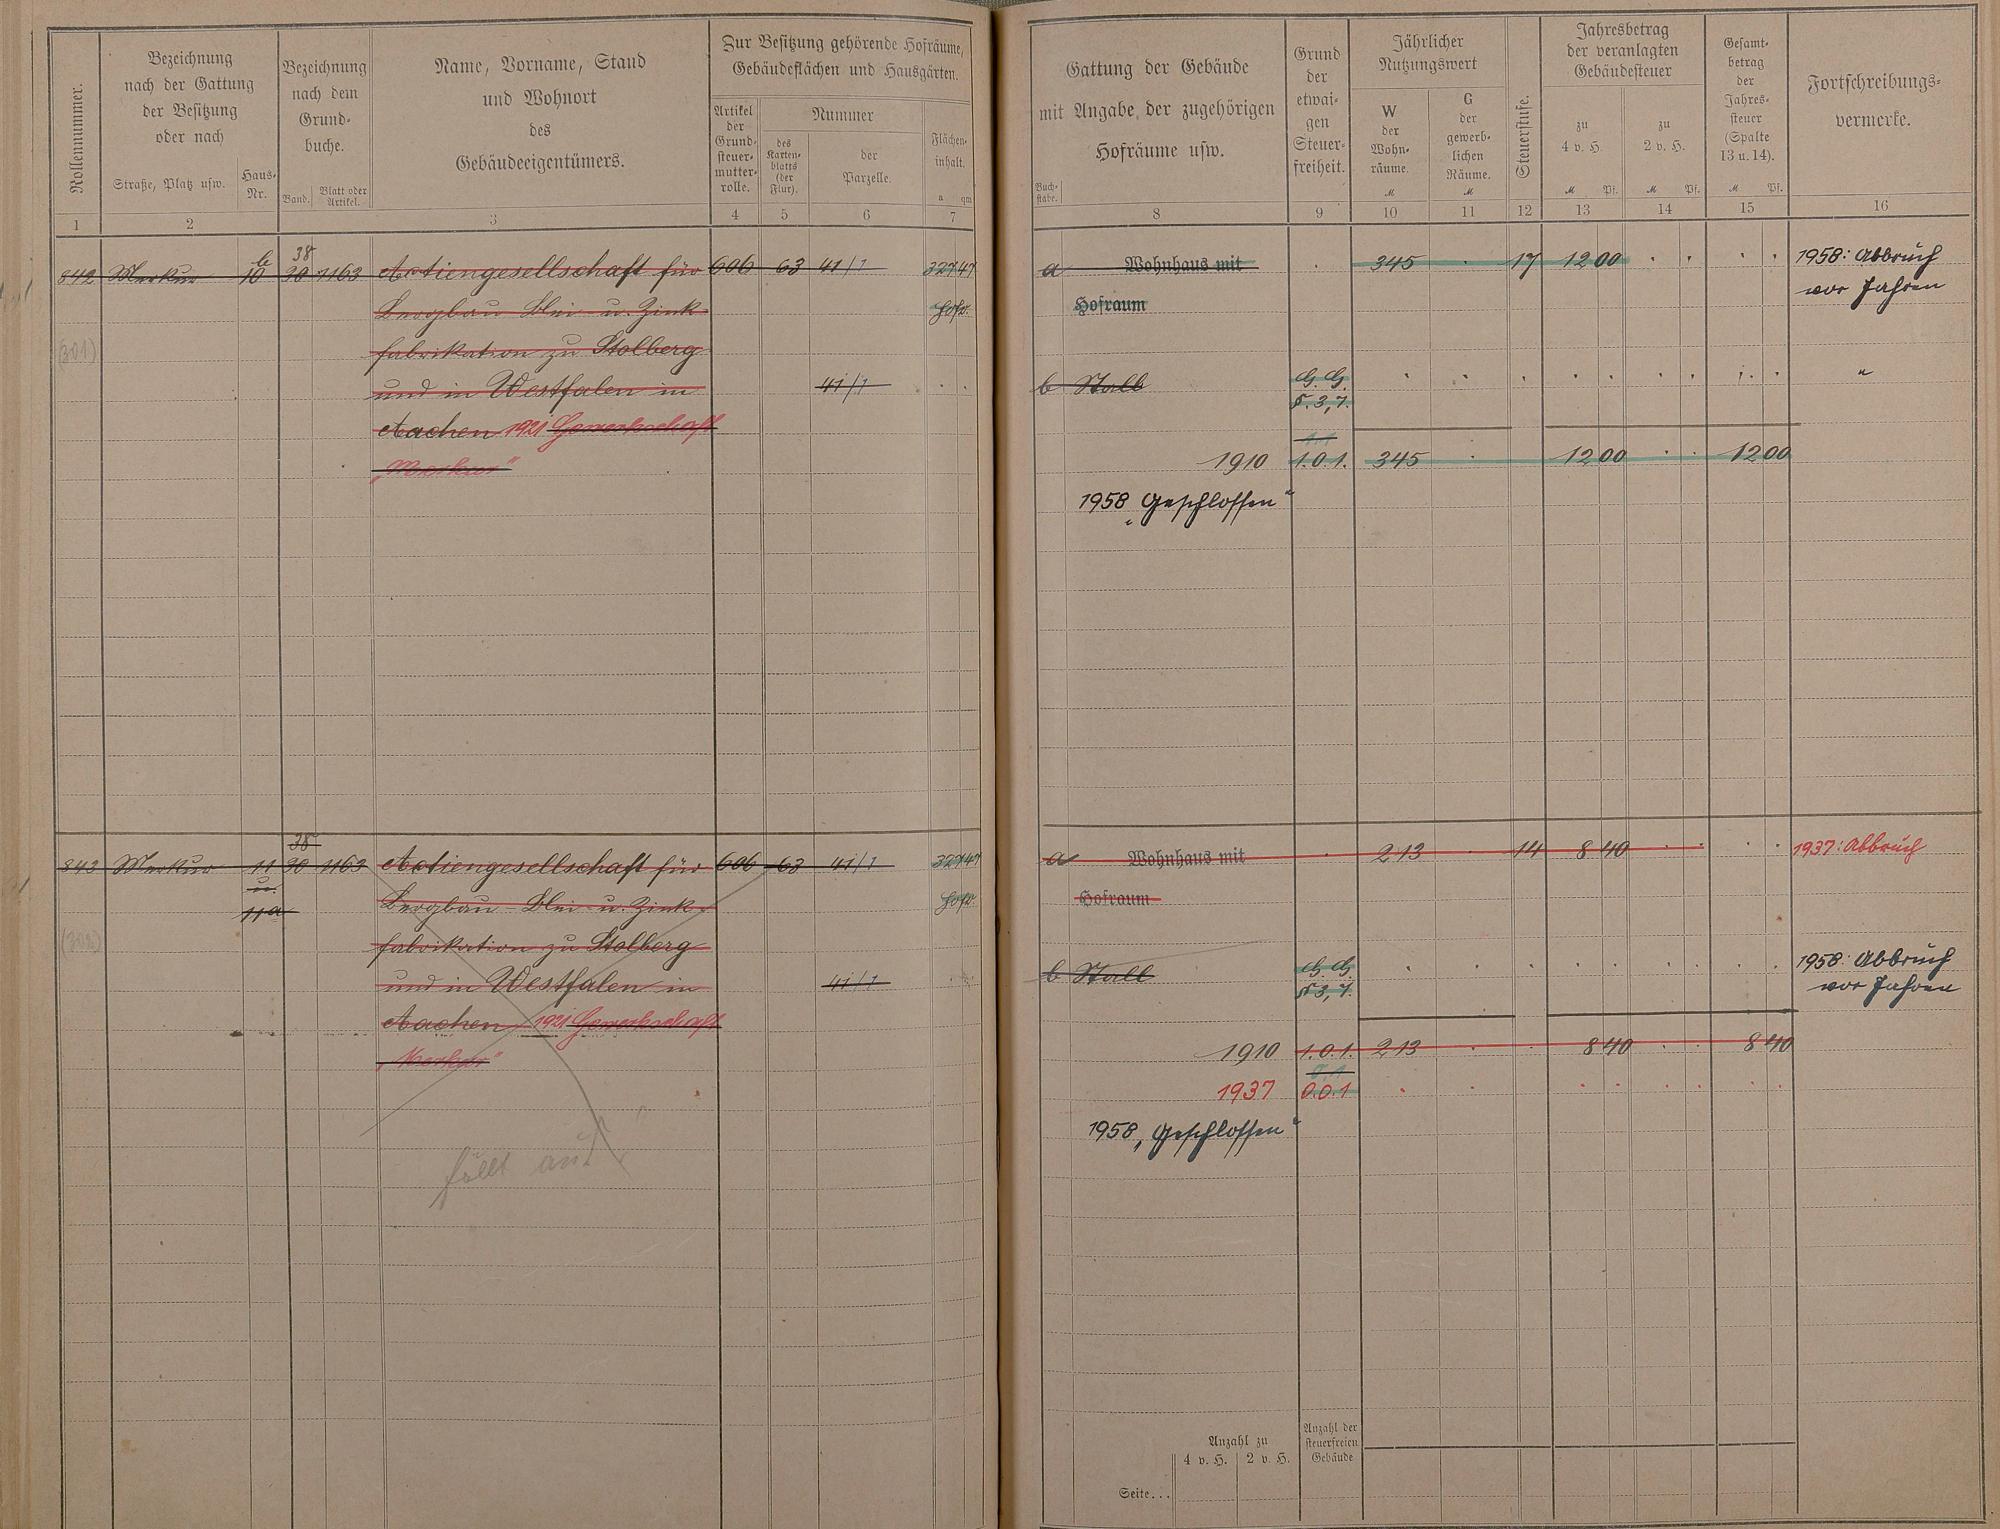 Rollennummer.
Bezeichnung
nach der Gattung
der Besitzung
oder nach
Straße, Platz usw.
Haus-
Nr.
Bezeichnung
nach dem
Grund-
buche.
Band.
Blatt oder
Artikel.
Name, Vorname, Stand
und Wohnort
des
Gebäudeeigentümers.
Zur Besitzung gehörende Hofräume,
Gebäudeflächen und Hausgärten.
Artikel
der
Grund-
steuer-
mutter-
rolle.
Nummer
des
Karten-
blatts
(der
Flur).
der
Parzelle.
Flächen-
inhalt.
a qm
1 2 3 4 5 6 7
38
842 Merkur 10 b 30 1163 Actiengesellschaft für 606 63 41/1 32747
Bergbau Blei- u. Zink- Hofr.
(301) fabrikation zu Stolberg
und in Westfalen in 41/1
Aachen 1921 Gewerkschaft
„Merkur"
38
843 Merkur 11 30 1163 Actiengesellschaft für 606 63 41/1 32747
u.
11a Bergbau- Blei- u. Zink- Hofr.
(302) fabrikation zu Stolberg
und in Westfalen in 41/1
Aachen 1921 Gewerkschaft
„Merkur"
fällt aus!
Gattung der Gebäude
mit Angabe der zugehörigen
Hofräume usw.
Buch-
stabe.
Grund
der
etwai-
gen
Steuer-
freiheit.
Jährlicher
Nutzungswert
W
der
Wohn-
räume.
M
G
der
gewerb-
lichen
Räume.
M
Steuerstufe.
Jahresbetrag
der veranlagten
Gebäudesteuer
zu
4 v. H.
M Pf.
zu
2 v. H.
M Pf.
Gesamt-
betrag
der
Jahres-
steuer
(Spalte
13 u. 14).
M Pf.
Fortschreibungs-
vermerke.
8 9 10 11 12 13 14 15 16
a Wohnhaus mit 345 17 12 00 1958: Abbruch
Hofraum vor Jahren
b Stall G. G. "
§. 3,7.
1910 1.0.1. 345 12 00 12 00
1958 „Geschlossen"
a Wohnhaus mit 213 14 8 40 1937: Abbruch
Hofraum
b Stall G. G. 1958: Abbruch
§ 3,7. vor Jahren
1910 1.0.1. 213 8 40 8 40
1937 0.0.1
1958 „Geschlossen"
Anzahl zu
4 v. H. 2 v. H.
Anzahl der
steuerfreien
Gebäude
Seite...